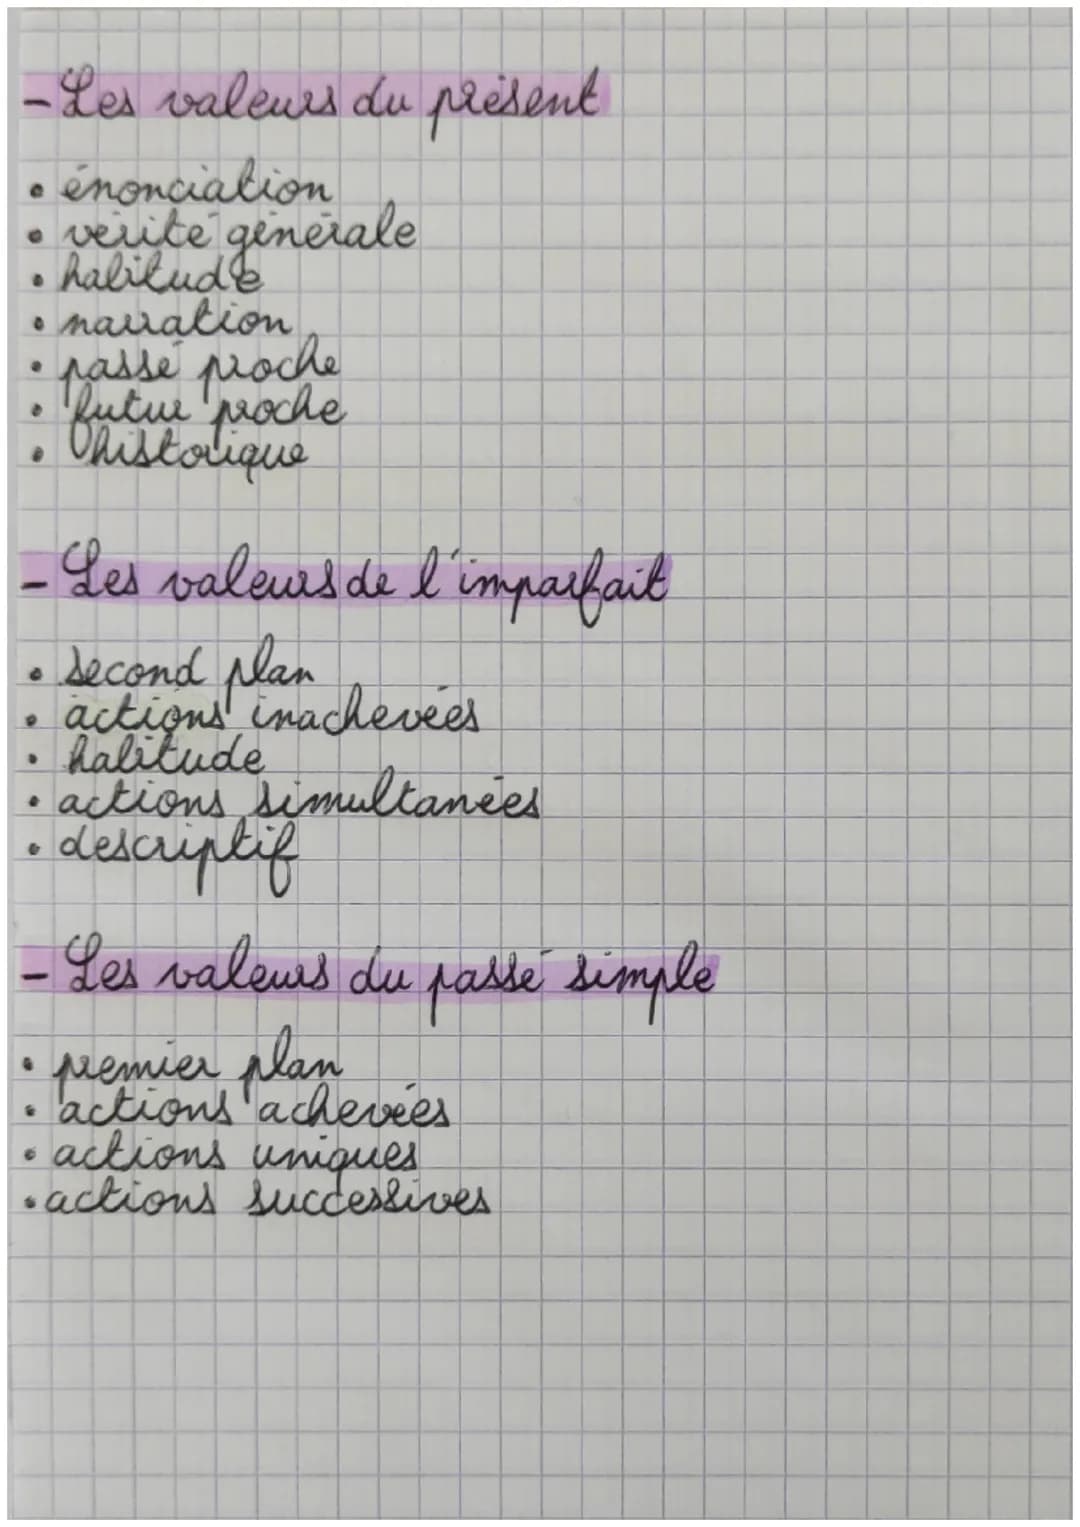 - Les valeurs du présent
• énonciation
• vérité générale
• habitude
• narration
• passé proche
• futur proche
• historique
- Les valeurs de l'imparfait
• second plan
• actions inachevées
• habitude
• actions simultanées
• descriptif
- Les valeurs du passé simple
• premier plan
• actions achevées
• actions uniques
• actions successives